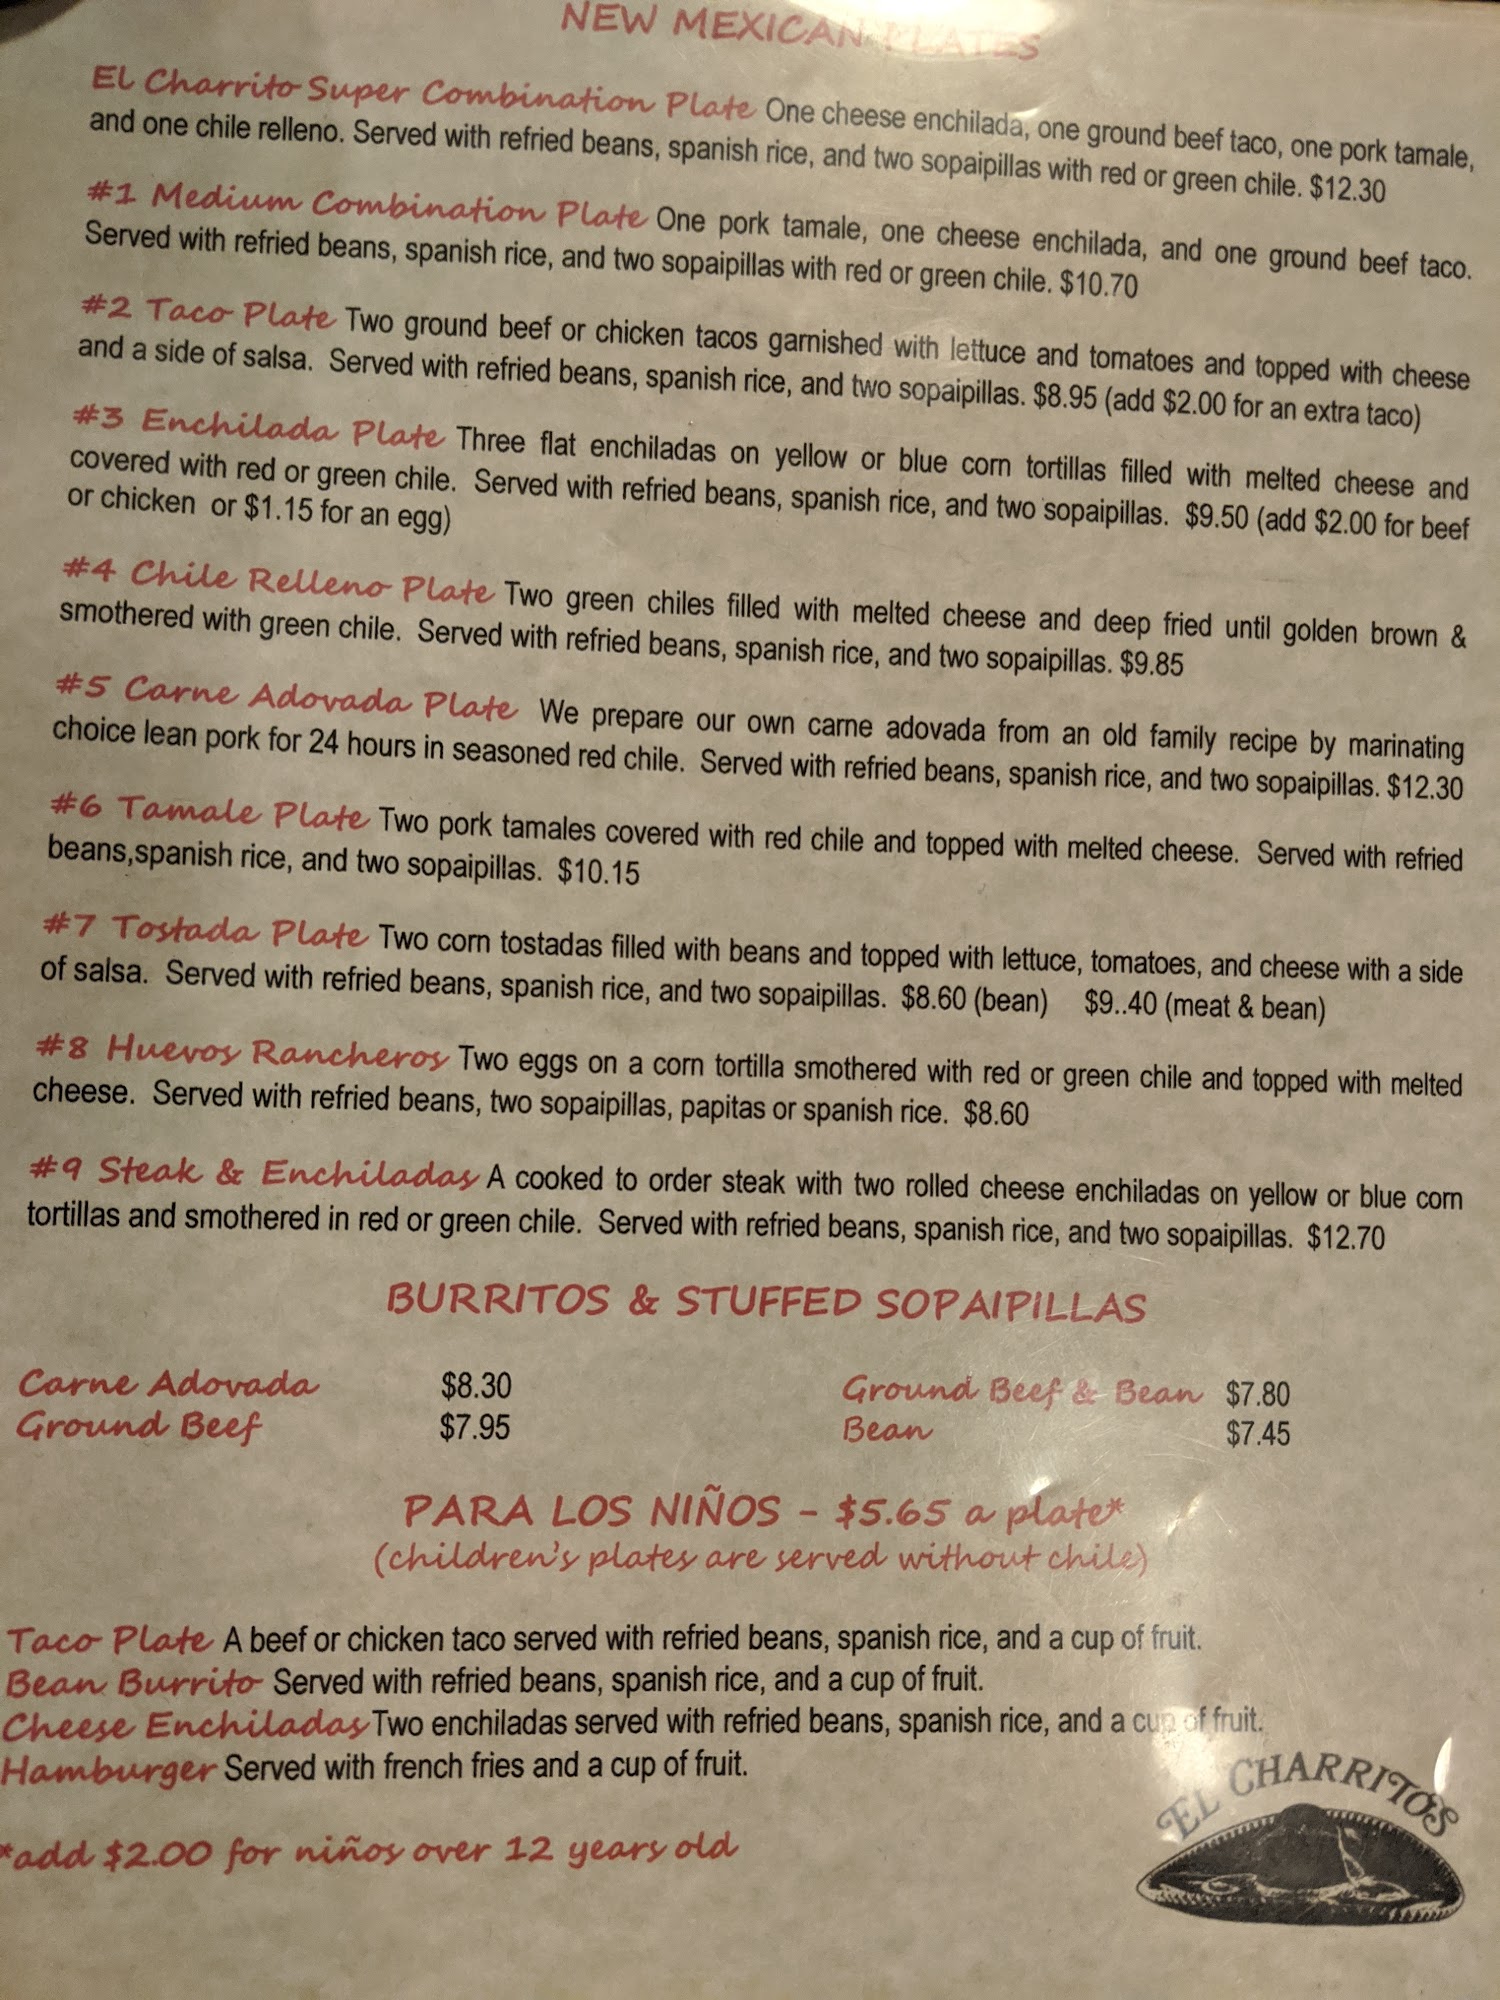 NEW MEXICAN PLATES
El Charrito Super Combination Plate One cheese enchilada, one ground beef taco, one pork tamale,
and one chile relleno. Served with refried beans, spanish rice, and two sopaipillas with red or green chile. $12.30
#1 Medium Combination Plate One pork tamale, one cheese enchilada, and one ground beef taco.
Served with refried beans, spanish rice, and two sopaipillas with red or green chile. $10.70
#2 Taco Plate Two ground beef or chicken tacos garnished with lettuce and tomatoes and topped with cheese
and a side of salsa. Served with refried beans, spanish rice, and two sopaipillas. $8.95 (add $2.00 for an extra taco)
#3 Enchilada Plate Three flat enchiladas on yellow or blue corn tortillas filled with melted cheese and
covered with red or green chile. Served with refried beans, spanish rice, and two sopaipillas. $9.50 (add $2.00 for beef
or chicken or $1.15 for an egg)
#4 Chile Relleno Plate Two green chiles filled with melted cheese and deep fried until golden brown &
smothered with green chile. Served with refried beans, spanish rice, and two sopaipillas. $9.85
#5 Carne Adovada Plate We prepare our own carne adovada from an old family recipe by marinating
choice lean pork for 24 hours in seasoned red chile. Served with refried beans, spanish rice, and two sopaipillas. $12.30
#6 Tamale Plate Two pork tamales covered with red chile and topped with melted cheese. Served with refried
beans,spanish rice, and two sopaipillas. $10.15
#7 Tostada Plate Two corn tostadas filled with beans and topped with lettuce, tomatoes, and cheese with a side
of salsa. Served with refried beans, spanish rice, and two sopaipillas. $8.60 (bean) $9..40 (meat & bean)
#8 Huevos Rancheros Two eggs on a corn tortilla smothered with red or green chile and topped with melted
cheese. Served with refried beans, two sopaipillas, papitas or spanish rice. $8.60
#9 Steak & Enchiladas A cooked to order steak with two rolled cheese enchiladas on yellow or blue corn
tortillas and smothered in red or green chile. Served with refried beans, spanish rice, and two sopaipillas. $12.70
BURRITOS & STUFFED SOPAIPILLAS
Carne Adovada $8.30 Ground Beef & Bean $7.80
Ground Beef $7.95 Bean $7.45
PARA LOS NIÑOS - $5.65 a plate*
(children's plates are served without chile)
Taco Plate A beef or chicken taco served with refried beans, spanish rice, and a cup of fruit.
Bean Burrito Served with refried beans, spanish rice, and a cup of fruit.
Cheese Enchiladas Two enchiladas served with refried beans, spanish rice, and a cup of fruit.
Hamburger Served with french fries and a cup of fruit.
EL CHARRITOS
*add $2.00 for niños over 12 years old